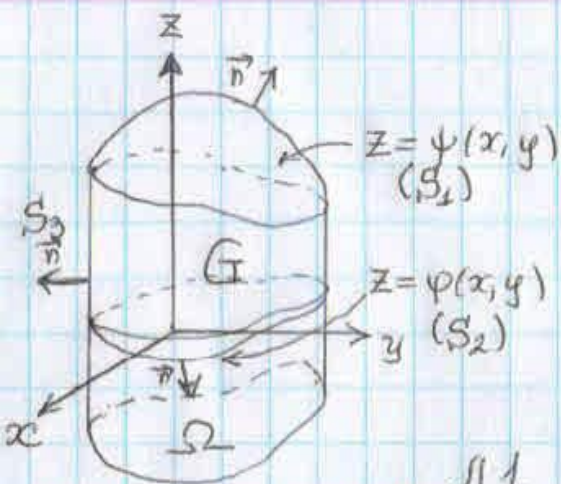 z
n⃗
z = ψ(x, y)
(S₁)
S₃
n⃗
G
z = φ(x, y)
(S₂)
y
n⃗
x
Ω